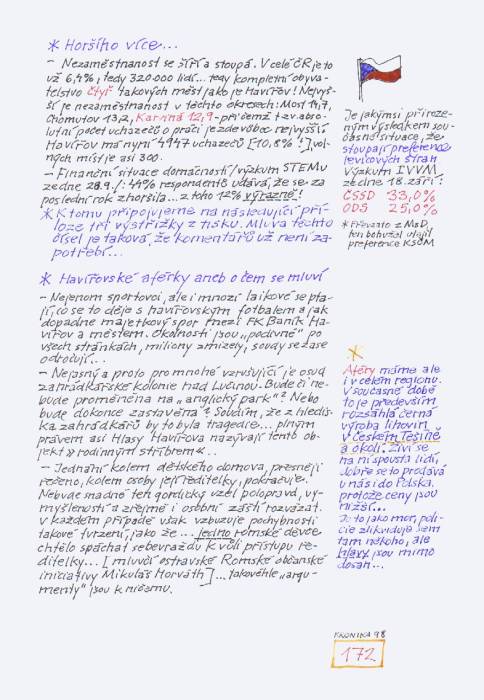 * Horšího více...
— Nezaměstnanost se šíří a stoupá. V celé ČR je to
už 6,4%, tedy 320.000 lidí... tedy kompletní obyva-
telstvo čtyř takových měst jako je Havířov! Nejvyš-
ší je nezaměstnanost v těchto okresech: Most 14,7,
Chomutov 13,2, Karviná 12,9 - přičemž tzv. abso-
lutní počet uchazečů o práci je zde vůbec nejvyšší.
Havířov má nyní 4947 uchazečů [10,8%!] vol-
ných míst je asi 300.
— Finanční situace domácností /výzkum STEMu
ze dne 28.9./: 49% respondentů udává, že se za
poslední rok zhoršila... z toho 12% výrazně!
* K tomu připojujeme na následující pří-
loze tři výstřižky z tisku. Mluva těchto
čísel je taková, že komentářů už není za-
potřebí...
* Havířovské aférky aneb o čem se mluví
— Nejenom sportovci, ale i mnozí laikové se pta-
jí, co se to děje s havířovským fotbalem a jak
dopadne majetkový spor mezi FK Baník Ha-
vířov a městem. Okolnosti jsou „podivné" po
všech stránkách, miliony zmizely, soudy se zase
odročují...
— Nejasný a proto pro mnohé vzrušující je osud
zahrádkářské kolonie nad Lučinou. Bude či ne-
bude proměněna na „anglický park"? Nebo
bude dokonce zastavěna? Soudím, že z hledis-
ka zahrádkářů by to byla tragedie... plným
právem asi Hlasy Havířova nazývají tento ob-
jekt »rodinným stříbrem«..
— Jednání kolem dětského domova, přesněji
řečeno, kolem osoby její ředitelky, pokračuje.
Nebude snadné ten gordický uzel polopravd, vy-
myšleností a zřejmě i osobní zášti rozvázat.
V každém případě však vzbuzuje pochybnosti
takové tvrzení, jako že... jedno romské děvče
chtělo spáchat sebevraždu k vůli přístupu ře-
ditelky... [mluvčí ostravské Romské občanské
iniciativy Mikuláš Horváth]... takovéhle „argu-
menty" jsou k ničemu.
Je jakýmsi přiroze-
ným výsledkem sou-
časné situace, že
stoupají preference
levicových stran
Výzkum IVVM
ze dne 18. září:
ČSSD 33,0%
ODS 25,0%
* Převzato z MaD,
ten bohužel utajil
preference KSČM
*
Aféry máme ale
i v celém regionu.
V současné době
to je především
rozsáhlá černá
výroba lihovin
v Českém Těšíně
a okolí. Živí se
na ní spousta lidí,
dobře se to prodává
u nás i do Polska,
protože ceny jsou
nižší...
Je to jako mor, poli-
cie zlikviduje sem
tam někoho, ale
hlavy jsou mimo
dosah...
KRONIKA 98
172